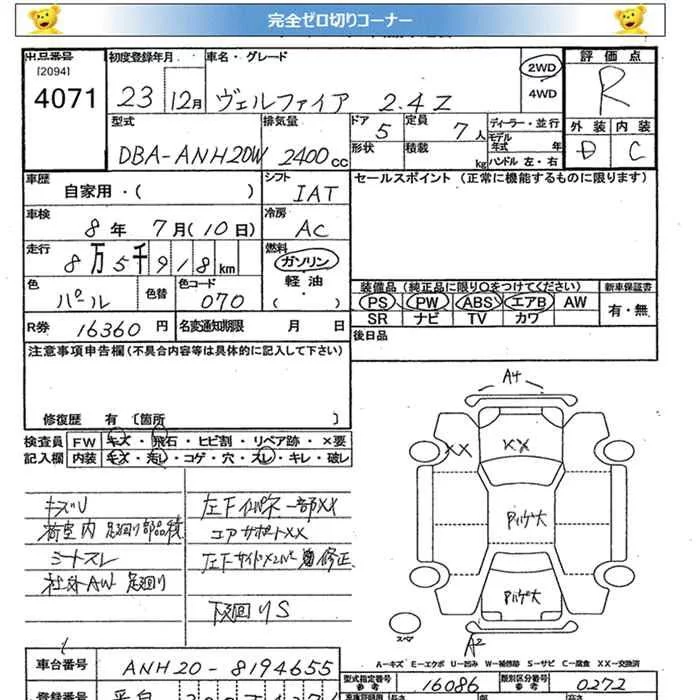 完全ゼロ切りコーナー
出品番号 初度登録年月 車名・グレード 評価点
[2094]
4071 23 12月 ヴェルファイア 2.4Z 2WD R
4WD
型式 排気量 ドア 5 定員 7人 ディーラー・並行 外装 内装
DBA-ANH20W 2400cc 形状 積載 kg モデル年式 年 D C
ハンドル 左・右
車歴 シフト セールスポイント (正常に機能するものに限ります)
自家用・( ) IAT
車検 冷房
8年 7月(10日) AC
走行 燃料
8万5千918km ガソリン
色 色替 色コード 軽油 装備品 (純正品に限り○をつけてください) 新車保証書
パール 070 ( ) PS PW ABS エアB AW 有・無
SR ナビ TV カワ
R券 16360円 名変通知期限 月 日 後日品
注意事項申告欄(不具合内容等は具体的に記入して下さい)
修復歴 有 〔箇所 〕
検査員 FW キズ・飛石・ヒビ割・リペア跡・×要
記入欄 内装 キズ・汚レ・コゲ・穴・スレ・キレ・破レ
キズU 左下インパネ一部XX
荷室内 足廻り部品積 コアサポートXX
シートスレ 左下サイドメンバー 修正
社外AW 足廻り
下廻りS
A4
XX
XX
パルゲ大
パルゲ大
スペア
A2
A-キズ E-エクボ U-凹み W-補修跡 S-サビ C-腐食 XX-交換済
車台番号 ANH20-8194655 型式指定番号 参考 16086 類別区分番号 参考 0272
登録番号 長さ 高さ